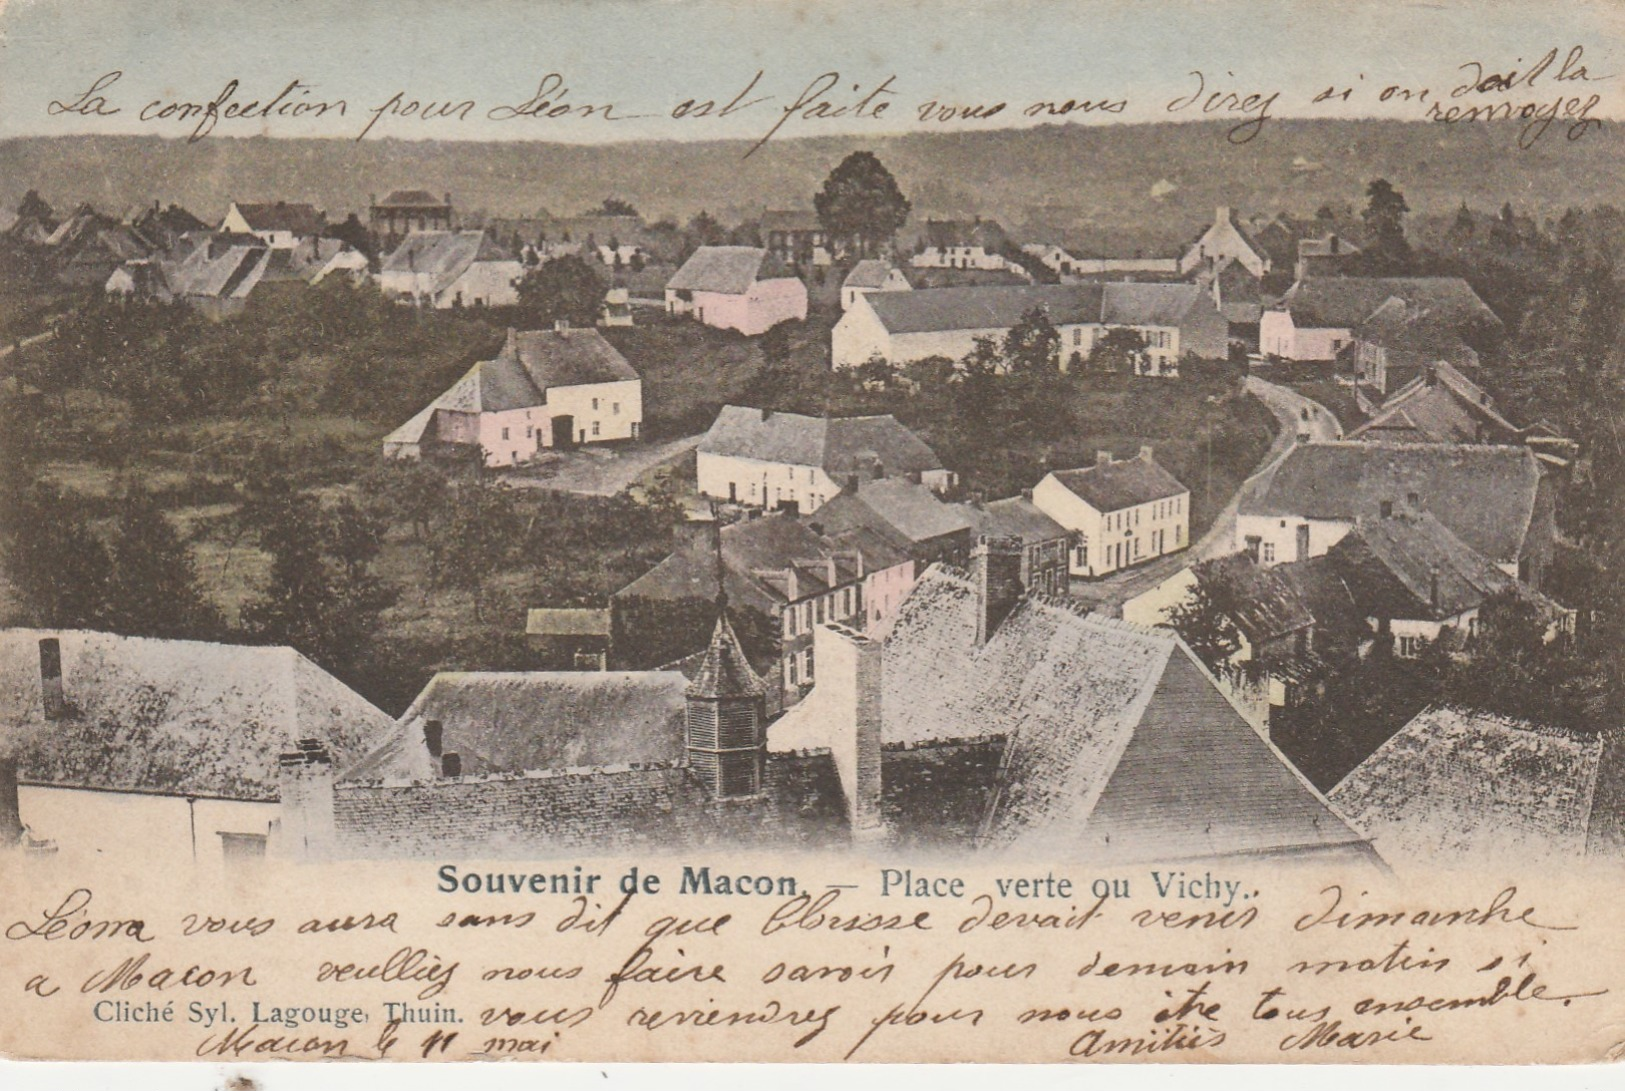 La confection pour Léon est faite vous nous direz si on doit la
renvoyez
Souvenir de Macon. — Place verte ou Vichy..
Léona vous aura sans dit que devait venir dimanche
a Macon veulliez nous faire savoir pour demain matin si
Cliché Syl. Lagouge, Thuin.
vous reviendrez pour nous être tous ensemble.
Macon le 11 mai
Amitiés Marie